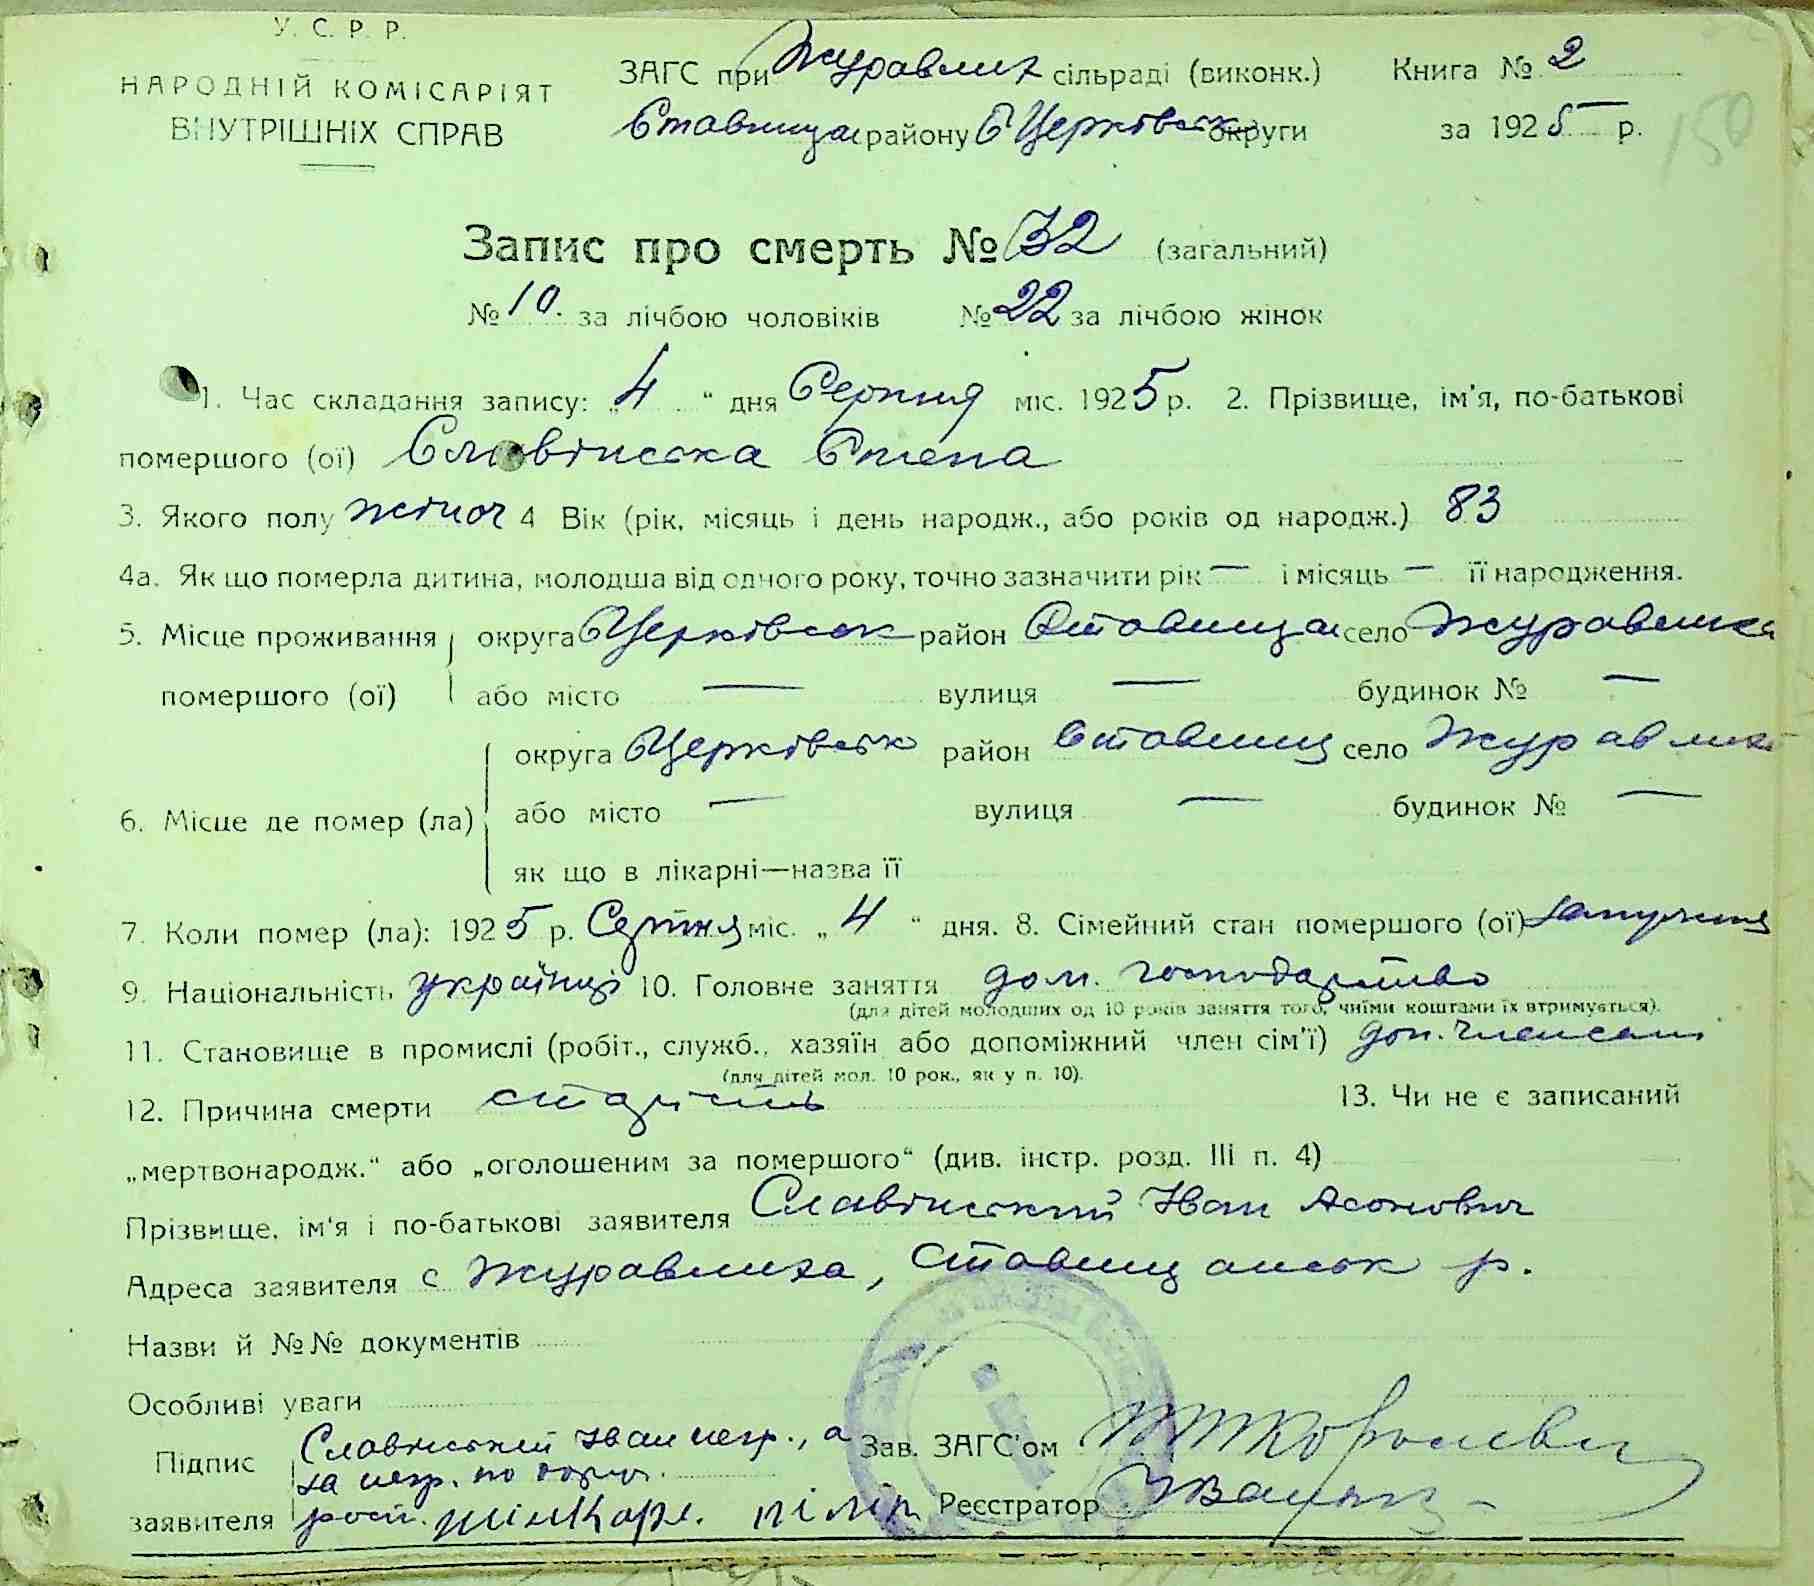 У. С. Р. Р.
НАРОДНІЙ КОМІСАРІЯТ
ВНУТРІШНІХ СПРАВ
ЗАГС при Журавлих сільраді (виконк.) Книга № 2
Ставища району БЦерківськ округи за 1925 р.
150
Запис про смерть № 32 (загальний)
№ 10. за лічбою чоловіків № 22 за лічбою жінок
1. Час складання запису: „4“ дня Серпня міс. 1925 р. 2. Прізвище, ім'я, по-батькові
помершого (ої) Славінська
3. Якого полу жіноч 4 Вік (рік, місяць і день народж., або років од народж.) 83
4а. Як що померла дитина, молодша від одного року, точно зазначити рік — і місяць — її народження.
5. Місце проживання округа БЦерківськ район Ставищан село Журавлиха
помершого (ої) або місто — вулиця — будинок № —
округа БЦерківськ район Ставищ село Журавлиха
6. Місце де помер (ла) або місто — вулиця — будинок № —
як що в лікарні—назва її
7. Коли помер (ла): 1925 р. Серпня міс. „4“ дня. 8. Сімейний стан помершого (ої)
9. Національність українці 10. Головне заняття дом. господарство
(для дітей молодших од 10 років заняття того, чиїми коштами їх втримується).
11. Становище в промислі (робіт., служб., хазяїн або допоміжний член сім'ї) доп. член сем'ї
(для дітей мол. 10 рок., як у п. 10).
12. Причина смерти старість 13. Чи не є записаний
„мертвонародж.“ або „оголошеним за помершого“ (див. інстр. розд. III п. 4)
Прізвище, ім'я і по-батькові заявителя Славінський Іван
Адреса заявителя с Журавлиха, Ставищанськ р.
Назви й №№ документів
Особливі уваги
Підпис Славінський Іван негр., а Зав. ЗАГС'ом
за негр. по
заявителя росп. Пілип Реєстратор